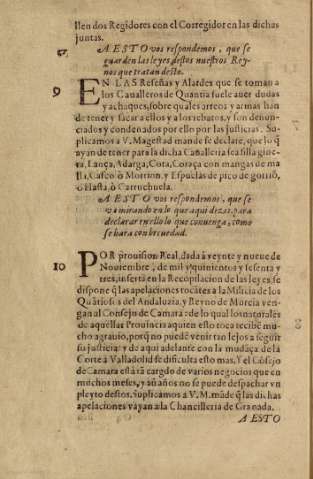 llen dos Regidores con el Corregidor en las dichas
juntas.
A ESTO vos respondemos, que se
guarden las leyes, destos nuestros Rey-
nos que tratan desto.
9
EN LAS Reseñas y Alardes que se toman a
los Caualleros de Quantia suele auer dudas
y achaques, sobre quales arreos y armas han
de tener y sacar a ellos y a los rebatos, y son denun-
ciados y condenados por ello por las justicias. Su-
plicamos a V. Magestad mande se declare, que lo q̃
ayan de tener para la dicha Caualleria sea silla gine-
ta, Lança, Adarga, Cota, Coraça con mangas de ma-
lla, Casco ò Morrion, y Espuelas de pico de gorriõ,
ò Hasta, ò Carruchuela.
A ESTO vos respondemos, que se
va mirando en lo que aqui dezis, para
declarar en ello lo que conuenga, como
se hara con breuedad.
10
POR prouision Real, dada à veynte y nueue de
Nouiembre, de mil y quinientos y sesenta y
tres, inserta en la Recopilacion de las leyes, se
dispone q̃ las apelaciones tocãtes a la Milicia de los
Quãtiosos del Andaluzia, y Reyno de Murcia ven-
gan al Consejo de Camara: de lo qual los naturales
de aquellas Prouincias a quien esto toca recibẽ mu-
cho agrauio, porq̃ no puedẽ venir tan lejos a seguir
su justicia: y de aqui adelante con la mudãça de la
Corte à Valladolid se dificulta esto mas. Y el Cõsejo
de Camara està tã cargdo de varios negocios que en
muchos meses, y aũ años no se puede despachar vn
pleyto destos. Suplicamos a V. M. mãde q̃ las dichas
apelaciones vayan a la Chancilleria de Granada.
A ESTO